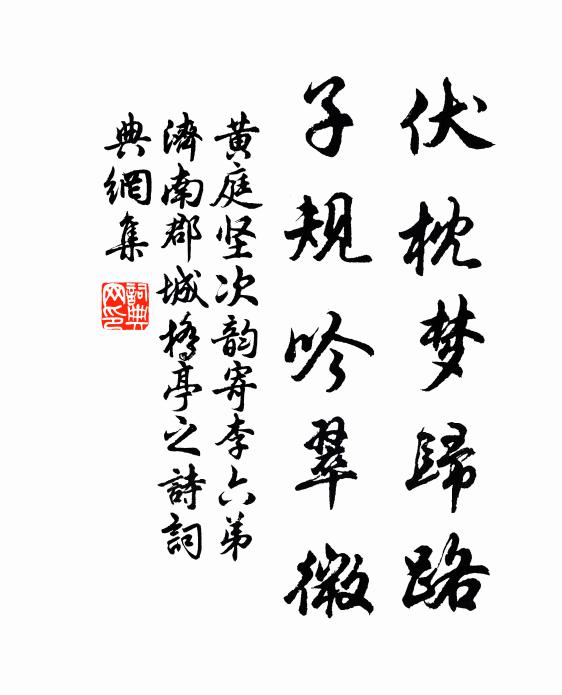 伏枕梦歸路
子規吟翠微
黄庭坚次韵寄李六弟
濟南郡城橋亭之詩詞
典網集
詞典
网印